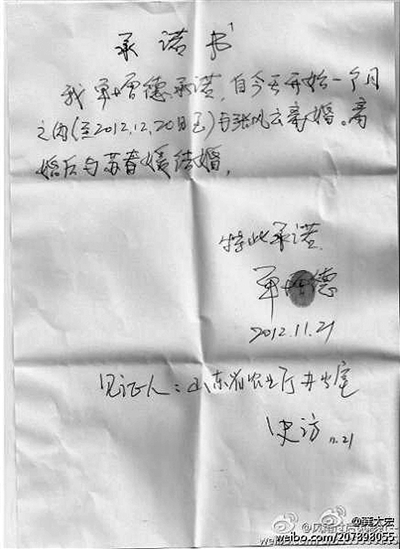 承诺书
我单增德承诺,自今天开始一个月
之内(至2012.12.20日止)与张风云离婚。离
婚后与苏春媛结婚,
特此承诺
单增德
2012.11.21
见证人:山东省农业厅办公室
史访 11.21
weibo.com/207898055